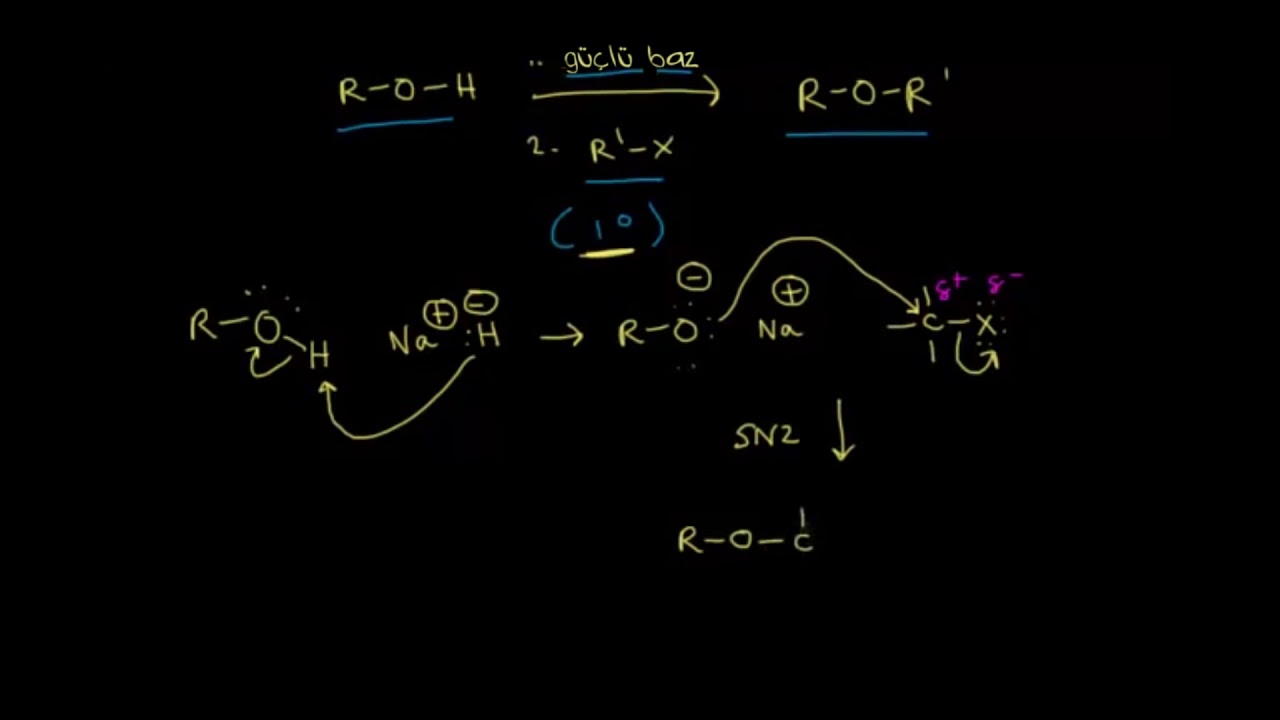 .. güçlü baz
R-O-H → R-O-R'
2. R'-X
(1°)
R-O-H Na⊕ ⊖:H → R-O:⊖ Na⊕ -C-X: δ+ δ-
SN2 ↓
R-O-C